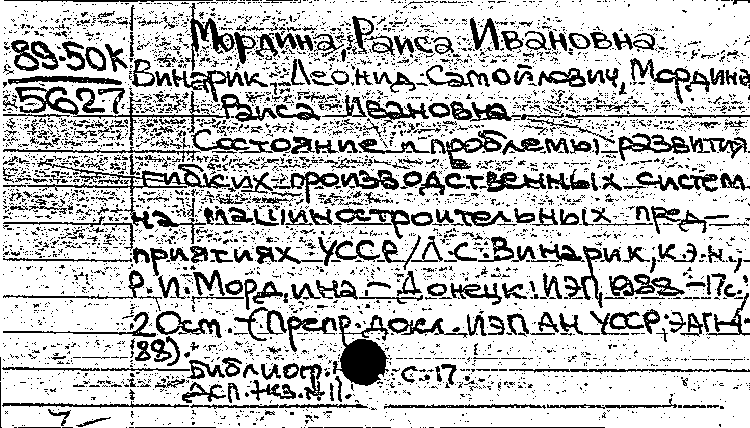 89-50К
5627
Мордина, Раиса Ивановна
Винарик, Леонид Самойлович, Мордина
Раиса Ивановна.
Состояние и проблемы развития
гибких производственных систем
на машиностроительных пред-
приятиях УССР / Л.С. Винарик, к.э.н.,
Р.И. Мордина - Донецк: ИЭП, 1988 - 17с.;
20см. - (Препр. докл. ИЭП АН УССР;
88).
Библиогр.: с. 17.
ДСП. Экз. № 11.